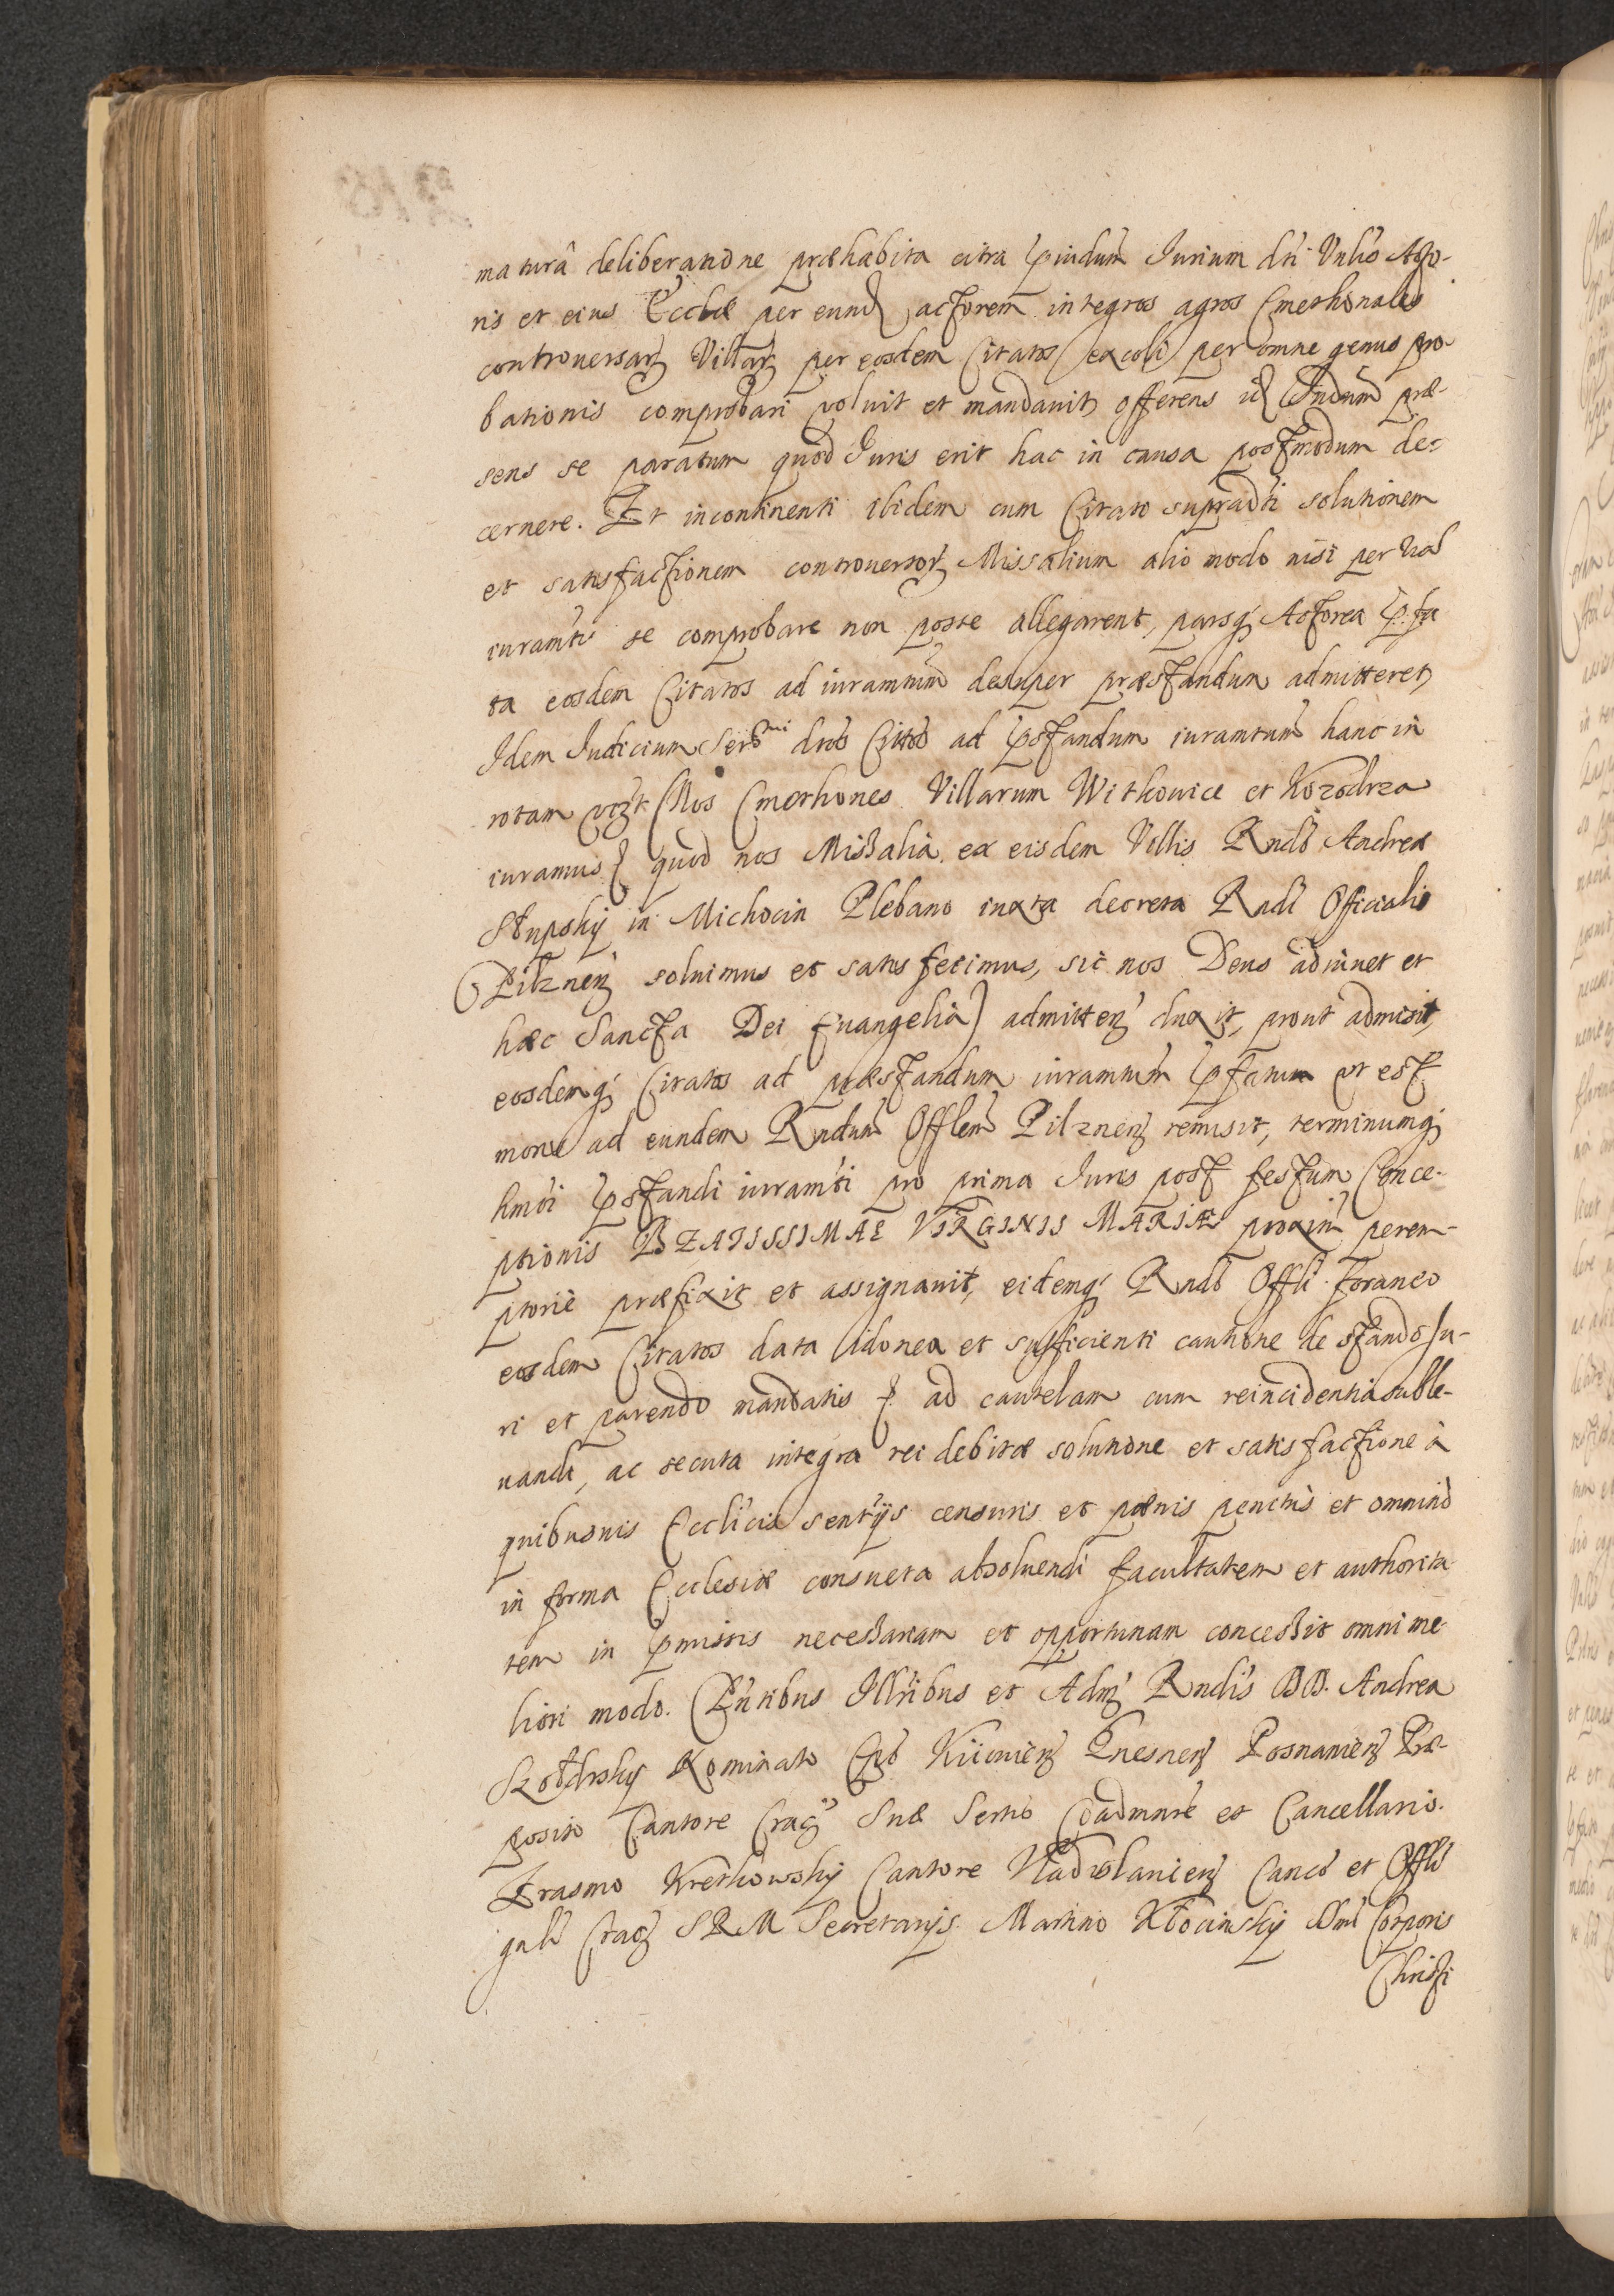 maturâ deliberatione præhabita citra p̱iudum Iurium dti Vnlis Acto-
ris et eius Eccliæ per eund actorem integros agros Cmethonales
controversarz Villarz per eosdem Citatos excoli per omne genus pro-
bationis comprobari voluit et mandavit offerens id Iudium præ-
sens se paratum quod Iuris erit hac in causa postmodum de-
cernere. Et incontinenti ibidem cum Citati supradti solutionem
et satisfactionem controversorz Missalium alio modo nisi per
iuramti se comprobare non posse allegarent, parsq Actorea p̱fa
ta eosdem Citatos ad iuramtum desuper præstandum admitteret,
Idem Iudicium Citos ad p̱standum iuramtum hanc in
rotam vczt (Nos Cmethones Villarum Witkowice et Kozodrza
iuramus quod nos Missalia ex eisdem Villis Rndo Andreæ
Słupsky in Michocin Plebano iuxta decreta Rndi Officialis
Pilznen soluimus et satisfecimus, sic nos Deus adiuuet et
hæc Sancta Dei Euangelia) admitten duxit, prout admisit,
eosdemq Citatos ad præstandum iuramtum p̱fatum vt est
moris ad eundem Rndum Offlem Pilznen remisit, terminumq
hmoi p̱standi iuramti pro prima Iuris post festum Conce-
ptionis BEATISSSIMAE VIRGINIS MARIÆ proxim perem-
ptorie præfixit et assignauit, eidemq Rndo Offli foraneo
eosdem Citatos data idonea et sufficienti cautione de stando Iu-
ri et parendo mandatis ad cautelam cum reincidentia suble-
uandi, ac secuta integra rei debitæ solutione et satisfactione à
quibusuis Ecclicis sentijs censuris et pænis penitùs et omninò
in forma Ecclesiæ consueta absoluendi facultatem et authorita
tem in p̱missis necessariam et opportunam concessit omni me
liori modo. Pñtibus Illribus et Adm Rndis DD. Andrea
Szołdrsky Nominato Epo Kiiouien Gnesnen Posnanien Præ-
posito Cantore Crac Suæ Sertis Coadmnre et Cancellario.
Erasmo Kretkowsky Cantore Vladislauien Canco et Offli
gnli Crac SRM Secretarijs Martino Kłocinsky Corporis
Christi